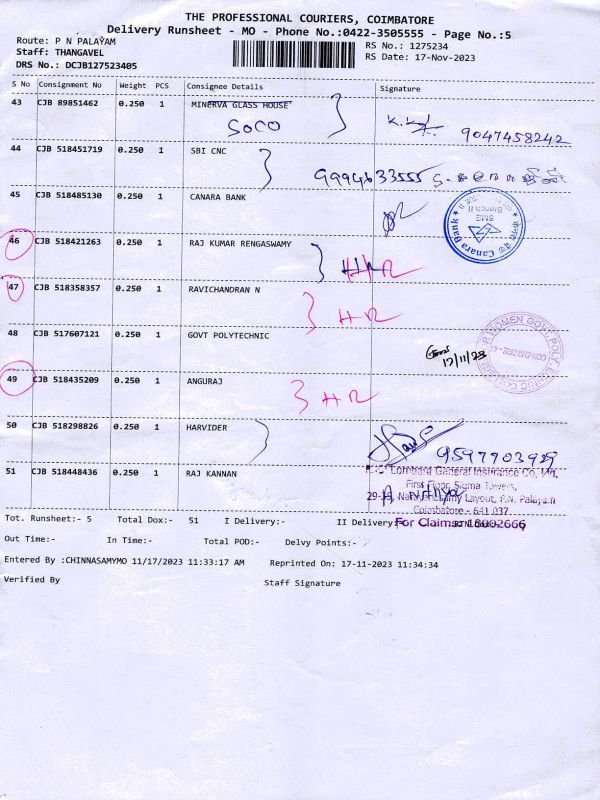 THE PROFESSIONAL COURIERS, COIMBATORE
Delivery Runsheet - MO - Phone No.:0422-3505555 - Page No.:5
Route: P N PALAYAM
RS No.: 1275234
Staff: THANGAVEL
RS Date: 17-Nov-2023
DRS No.: DCJB127523405
S No Consignment No Weight PCS Consignee Details Signature
43 CJB 89851462 0.250 1 MINERVA GLASS HOUSE
SOCO 9047458242
44 CJB 518451719 0.250 1 SBI CNC
9994633555
45 CJB 518485130 0.250 1 CANARA BANK
Canara Bank
SME
Branch II
46 CJB 518421263 0.250 1 RAJ KUMAR RENGASWAMY
HR
47 CJB 518358357 0.250 1 RAVICHANDRAN N
HR
48 CJB 517607121 0.250 1 GOVT POLYTECHNIC
17/11/23
WOMEN GOVT. POLY
COIMBATORE
49 CJB 518435209 0.250 1 ANGURAJ
HR
50 CJB 518298826 0.250 1 HARVIDER
9597703929
51 CJB 518448436 0.250 1 RAJ KANNAN
Lombard General Insurance Co.
First Floor, Sigma Towers,
Layout, P.N. Palayam
Coimbatore - 641 037
For Claims: 18002666
Tot. Runsheet:- 5 Total Dox:- 51 I Delivery:- II Delivery
Out Time:- In Time:- Total POD:- Delvy Points:-
Entered By :CHINNASAMYMO 11/17/2023 11:33:17 AM Reprinted On: 17-11-2023 11:34:34
Verified By Staff Signature